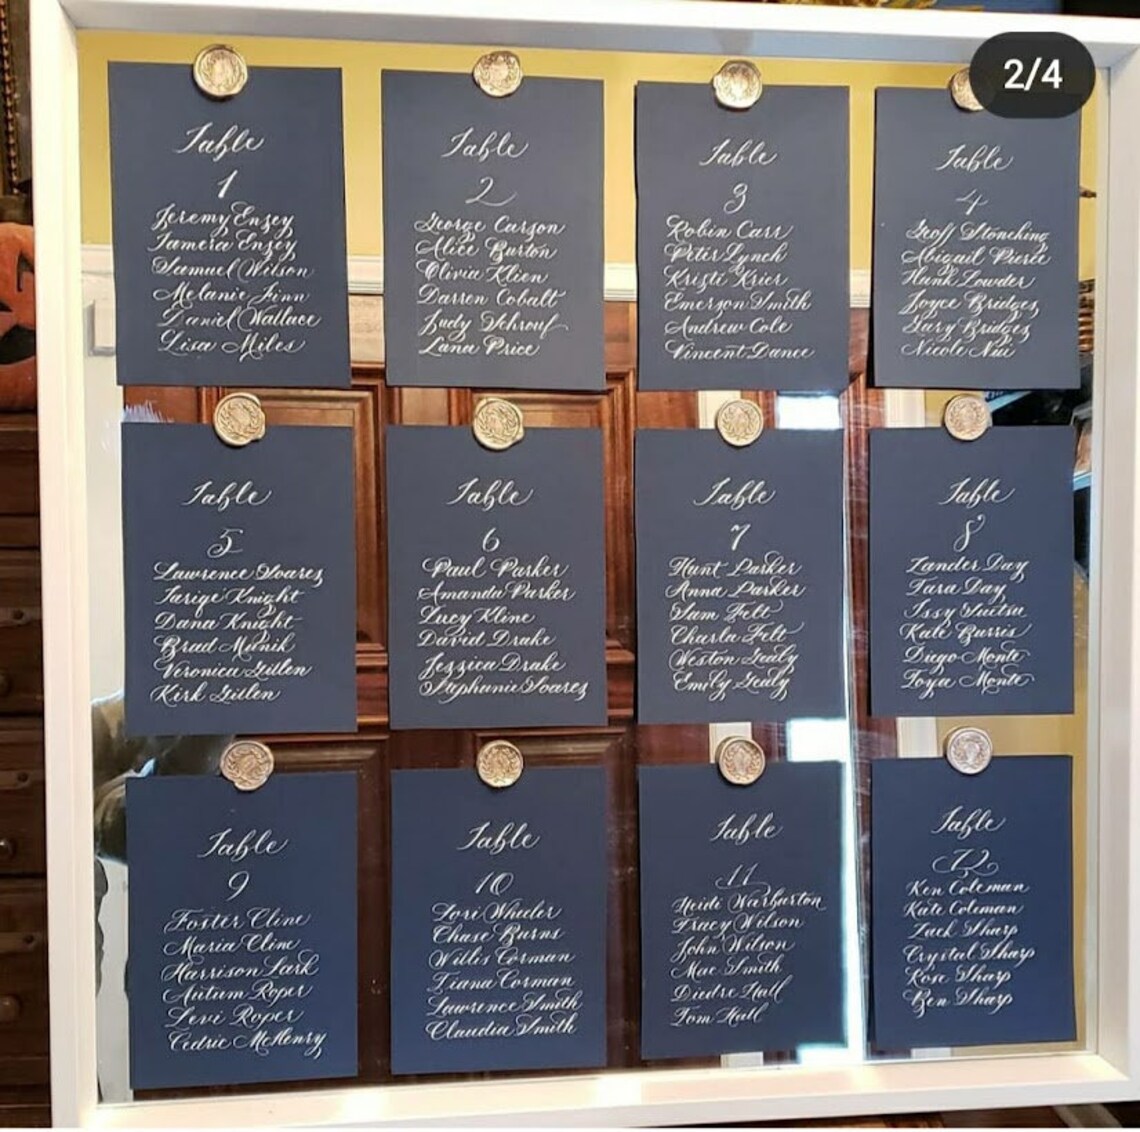 2/4
Table
1
Jeremy Enzey
Tamera Enzey
Samuel Wilson
Melanie Finn
Daniel Wallace
Lisa Miles
Table
2
George Curson
Alice Burton
Olivia Klien
Darren Cobalt
Judy Schrouf
Lana Price
Table
3
Robin Carr
Peter Lynch
Kristi Krier
Emerson Smith
Andrew Cole
Vincent Dance
Table
4
Geoff Stonching
Abigail Pierce
Hank Lowder
Joyce Bridges
Gary Bridges
Nicole
Table
5
Lawrence Soares
Tariqe Knight
Dana Knight
Brad
Veronica Gillen
Kirk Gillen
Table
6
Paul Parker
Amanda Parker
Lucy Kline
David Drake
Jessica Drake
Stephanie Soares
Table
7
Hunt Parker
Anna Parker
Sam Felt
Charla Felt
Weston Gealy
Emily Gealy
Table
8
Zander Day
Tara Day
Issy
Kate Burris
Diego Monte
Toya Monte
Table
9
Foster Cline
Maria Cline
Harrison Lark
Autum Roper
Levi Roper
Cedric McHenry
Table
10
Lori Wheeler
Chase Burns
Willis Corman
Tiana Corman
Lawrence Smith
Claudia Smith
Table
11
Heidi Warburton
Tracy Wilson
John Wilson
Mae Smith
Diedre Hall
Tom Hall
Table
12
Ken Coleman
Kate Coleman
Zack Sharp
Crystal Sharp
Rose Sharp
Ben Sharp